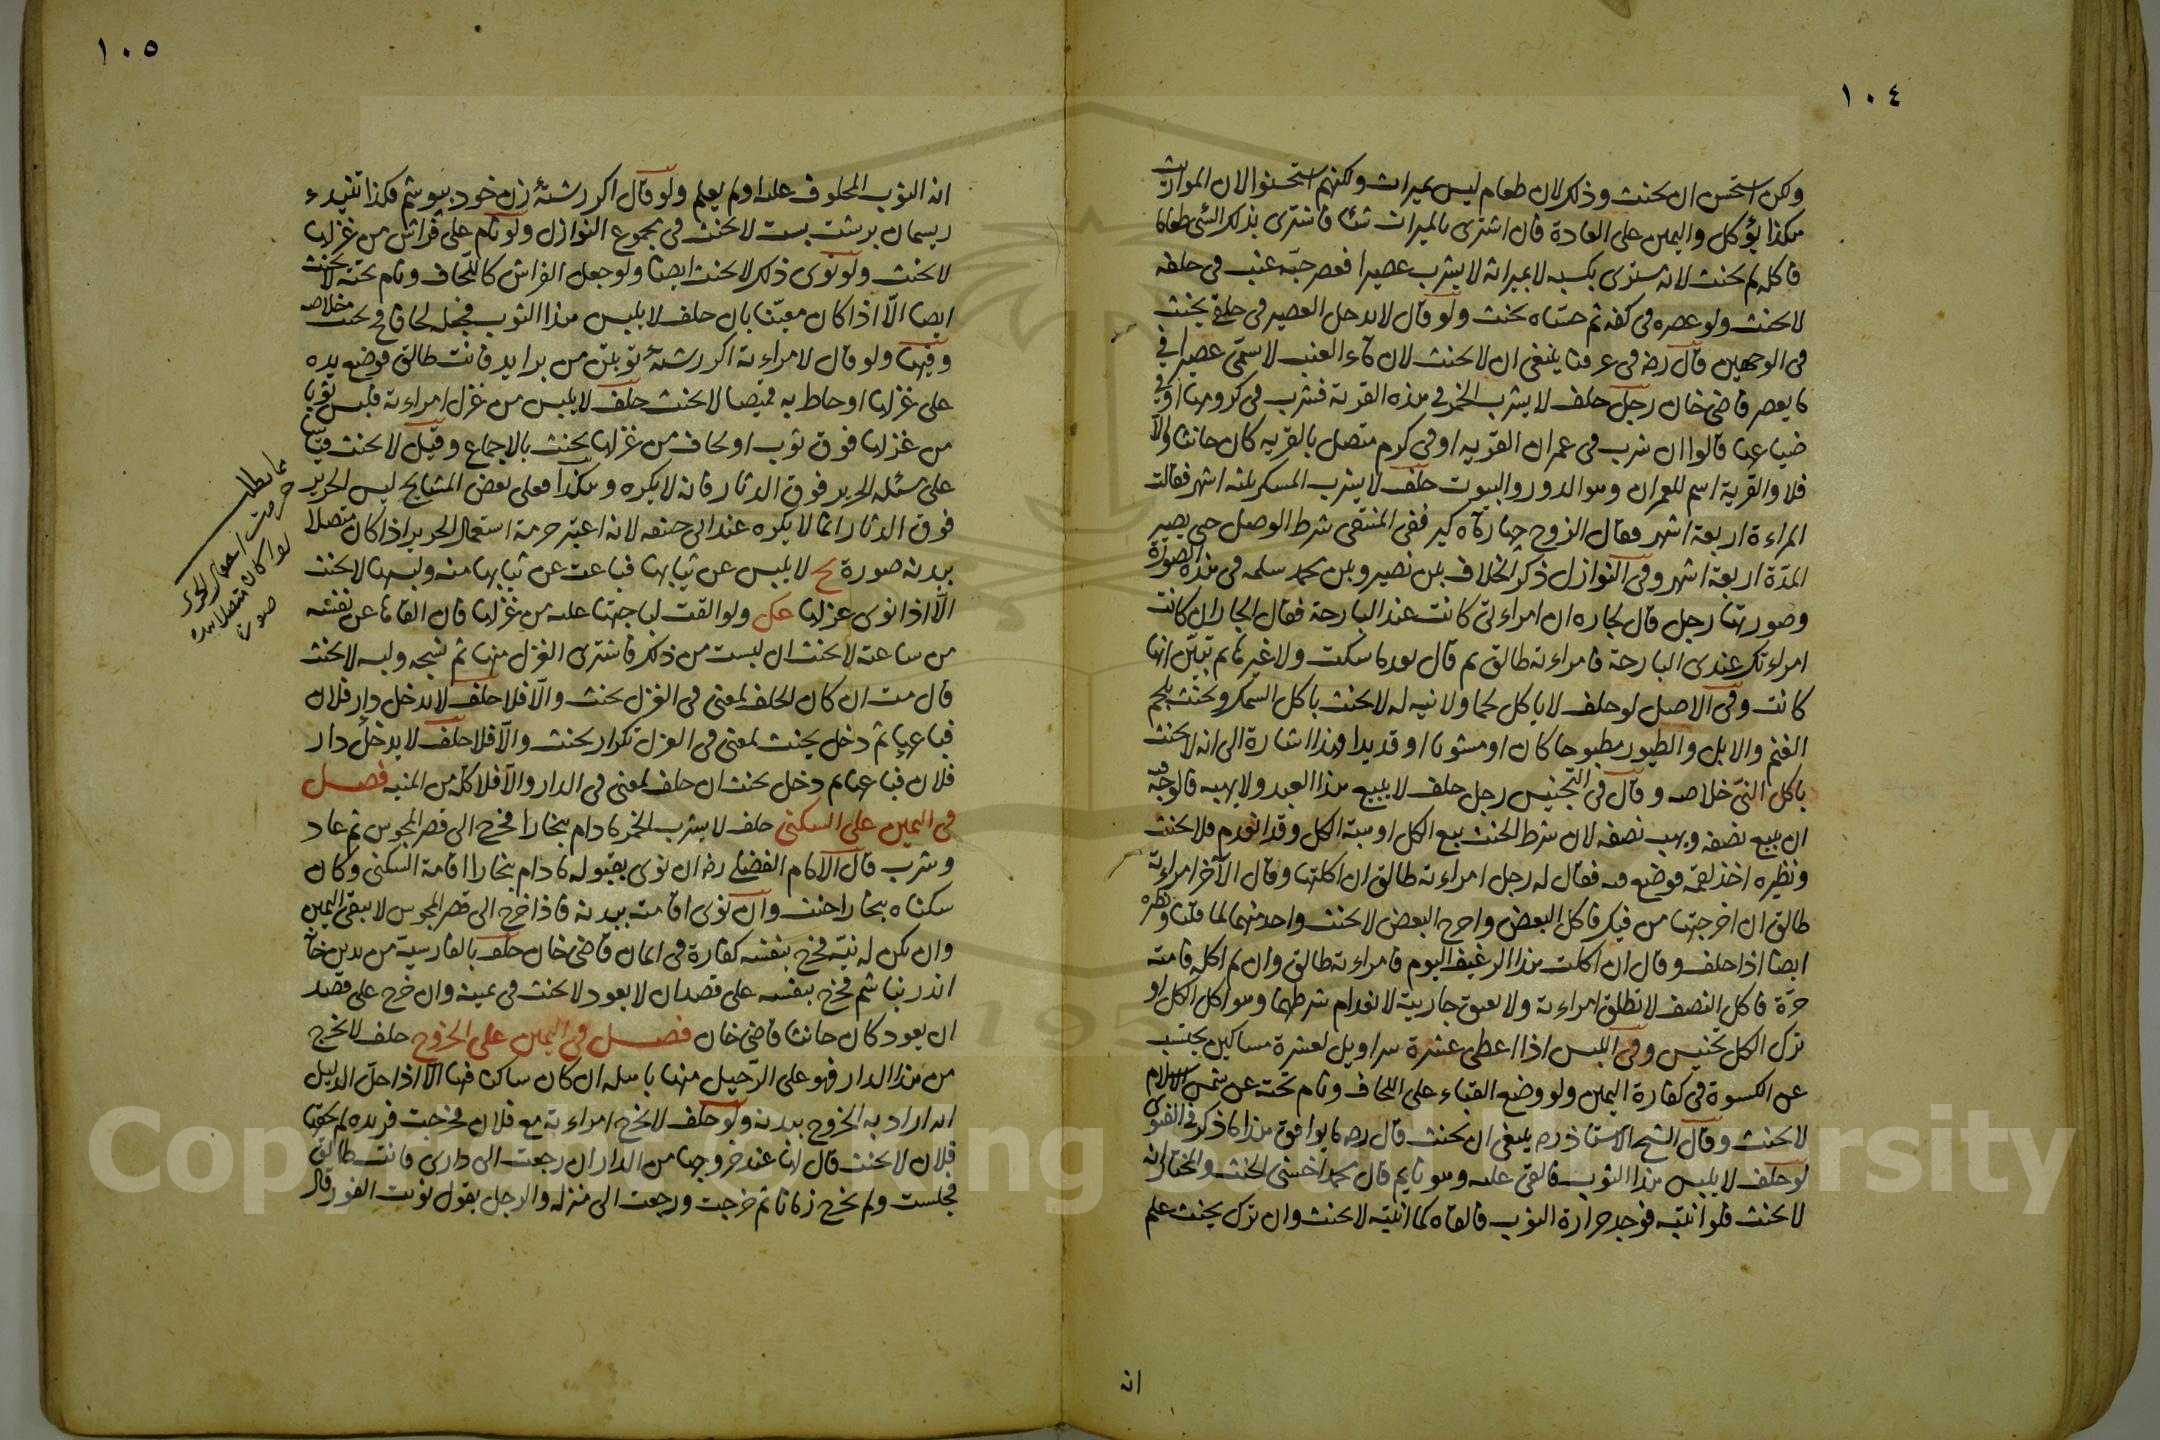 ١٠٤
ولكن استحسن ان يحنث وذلك لان طعام ليس بميراث ولكنهم استحسنوا لان المواريث
هكذا يؤكل واليمين على العادة فان اشترى بالميراث شيئا فاشترى بذلك الشئ طعاما
فاكله لم يحنث لانه مشترى بكسبه لا بميراثه لا يشرب عصيرا فعصر حبّه عنب فى حلقه
لا يحنث ولو عصره فى كفه ثم حسّاه يحنث ولو قال لا يدخل العصير فى حلقى يحنث
فى الوجهين قال رضه فى عرفنا ينبغى ان لا يحنث لان ماء العنب لا يسمّى عصيرا فى
ما يعصر قاضى خان رجل حلف لا يشرب الخمر فى هذه القرية فشرب فى كرومها او فى
ضياعها قالوا ان شرب فى عمران القريه او فى كرم متصل بالقريه كان حانثا والّا
فلا والقرية اسم للعمران وهو الدور والبيوت حلف لا يشرب المسكر ثلثة اشهر فقالت
المراءة اربعة اشهر فقال الزوج چهار ماه كير ففى المنتقى شرط الوصل حتى يصير
المدّة اربعة اشهر وفى النوازل ذكر الخلاف بين نصير وبين محمد سلمه فى هذه الصورة
وصورتها رجل قال لجاره ان امراءتى كانت عند البارحة فقال الجار ان كانت
امراءتك عندى البارحة فامراءته طالق ثم قال بعدما سكت ولا غيرها ثم تبيّن انها
كانت وفى الاصل لو حلف لا ياكل لحما ولا نيه له لا يحنث باكل السمك ويحنث بلحم
الغنم والابل والطيور مطبوخا كان او مشويا او قديدا وهذا اشارة الى انه لا يحنث
باكل النّى خلاصه وقال فى التجنيس رجل حلف لا يبيع هذا العبد ولا يهبه فالوجه فيه
ان يبيع نصفه ويهب نصفه لان شرط الحنث بيع الكل او هبة الكل وقد انعدم فلا يحنث
ونظيره اخذ لقمه فوضع فيه فقال له رجل امراءته طالق ان اكلتها وقال الآخر امراءته
طالق ان اخرجتها من فيك فاكل البعض واخرج البعض لا يحنث واحد منهما لما قلنا ونظيره
ايضا اذا حلف وقال ان اكلت هذا الرغيف اليوم فامراءته طالق وان لم اكله فامته
حرّة فاكل النصف لا تطلق امراءته ولا يعتق جاريته لانعدام شرطهما وهو اكل الكل او
ترك الكل تجنيس وفى اللبس اذا اعطى عشرة سراويل لعشرة مساكين يجتنب
عن الكسوة فى كفارة اليمين ولو وضع القباء على اللحاف ونام تحته عن شمس الاسلام
لا يحنث وقال الشيخ الاستاذ رحم ينبغى ان يحنث قال رضه ما يوافق هذا ما ذكر فى الفتوى
لو حلف لا يلبس هذا الثوب فالقى عليه وهو نايم قال محمد اخشى الحنث والمختار انه
لا يحنث فلو انتبه فوجد حرارة الثوب فالقاه كما انتبه لا يحنث وان ترك يحنث علم
انه
١٠٥
انه الثوب المحلوف عليه او لم يعلم ولو قال اكر رشتۀ زن خود بپوشم فكذا تنيده
ريسمان برشت بست لا يحنث فى مجموع النوازل ولو نام على فراش من غزلها
لا يحنث ولو نوى ذلك لا يحنث ايضا ولو جعل الفراش كاللّحاف ونام تحته لا يحنث
ايضا الّا اذا كان معيّنا بان حلف لا يلبس هذا الثوب فجعله لحافا فح يحنث خلاصه
وفيها ولو قال لامراءته اكر رشتۀ تو بتن من برايد فانت طالق فوضع يده
على غزلها او حاط به قميصا لا يحنث حلف لا يلبس من غزل امراءته فلبس ثوبا
من غزلها فوق ثوب او لحاف من غزلها يحنث بالاجماع وقيل لا يحنث قياسا
على مسئله الحرير فوق الدثار فانه لا يكره وهكذا فعلى بعض المشايخ لبس الحرير
فوق الدثار انما لا يكره عند ابى حنيفه لانه اعتبر حرمة استعمال الحرير اذا كان متصلا
ببدنه صورة يح لا يلبس عن ثيابها فباعت عن ثيابها منه ولبسها لا يحنث
الّا اذا نوى غزلها عك ولو القت لباجتها عليه من غزلها فان القاها عن نفسه
من ساعته لا يحنث ان لبست من ذلك فاشترى الغزل منها ثم نسجه ولبسه لا يحنث
قال مت ان كان الحلف لمعنى فى الغزل يحنث والّا فلا حلف لا يدخل دار فلان
فباعها ثم دخل يحنث لمعنى فى الغزل تكرار يحنث والّا فلا حلف لا يدخل دار
فلان فباعها ثم دخل يحنث ان حلف لمعنى فى الدار والّا فلا كلّه من المنيه فصل
فى اليمين على السكنى حلف لا يشرب الخمر مادام ببخارا فخرج الى قصر المجوس ثم عاد
وشرب قال الامام الفضلى رضه ان نوى بقبوله مادام ببخارا اقامة السكنى وكان
سكناه ببخارا حنث وان نوى اقامته ببدنه فاذا خرج الى قصر المجوس لا يبقى اليمين
وان لم يكن له نيّة فخرج بنفسه كفارة فى ايمان قاضى خان حلف بالفارسية من بدين خانه
اندر نباشم فخرج بنفسه على قصد ان لا يعود لا يحنث فى يمينه وان خرج على قصد
ان يعود كان حانثا قاضى خان فصل فى اليمين على الخروج حلف لا يخرج
من هذا الدار فهو على الرّحيل منها باهله ان كان ساكنا فيها الّا اذا دلّ الدليل
انه اراد به الخروج ببدنه ولو حلف لا تخرج امراءته مع فلان فخرجت فريده ثم لحقها
فلان لا يحنث قال لها عند خروجها من الدار ان رجعت الى دارى فانت طالق
فجلست ولم تخرج زمانا ثم خرجت ورجعت الى منزله والرجل يقول نويت الفور قال
مطلب
حرمت استعمال الحرير
لو كان متصلا ببدنه
صورة
Copyright © King Saud University
1957